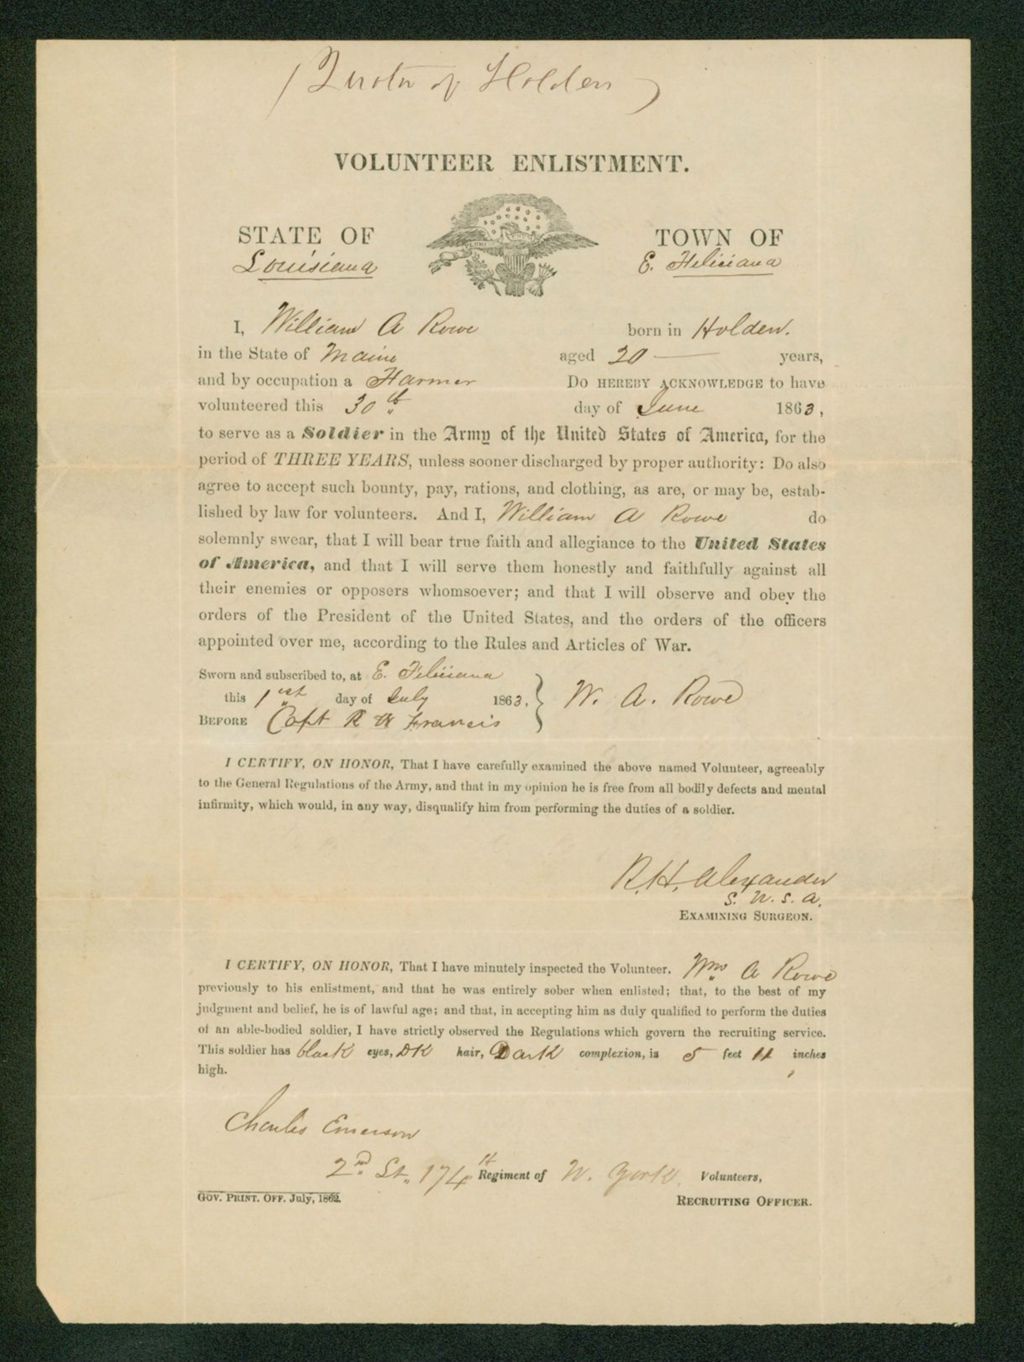 (Quota of Holden)
VOLUNTEER ENLISTMENT.
STATE OF TOWN OF
Louisiana E. Feliciana
I, William A Rowe born in Holden.
in the State of Maine aged 20 years,
and by occupation a Farmer Do HEREBY ACKNOWLEDGE to have
volunteered this 30th day of June 1863,
to serve as a Soldier in the Army of the United States of America, for the
period of THREE YEARS, unless sooner discharged by proper authority: Do also
agree to accept such bounty, pay, rations, and clothing, as are, or may be, estab-
lished by law for volunteers. And I, William A Rowe do
solemnly swear, that I will bear true faith and allegiance to the United States
of America, and that I will serve them honestly and faithfully against all
their enemies or opposers whomsoever; and that I will observe and obey the
orders of the President of the United States, and the orders of the officers
appointed over me, according to the Rules and Articles of War.
Sworn and subscribed to, at E. Feliciana
this 1st day of July 1863, W. A. Rowe
BEFORE Capt R W Francis
I CERTIFY, ON HONOR, That I have carefully examined the above named Volunteer, agreeably
to the General Regulations of the Army, and that in my opinion he is free from all bodily defects and mental
infirmity, which would, in any way, disqualify him from performing the duties of a soldier.
R. H. Alexander
S. U. S. A.
EXAMINING SURGEON.
I CERTIFY, ON HONOR, That I have minutely inspected the Volunteer. Wm A Rowe
previously to his enlistment, and that he was entirely sober when enlisted; that, to the best of my
judgment and belief, he is of lawful age; and that, in accepting him as duly qualified to perform the duties
of an able-bodied soldier, I have strictly observed the Regulations which govern the recruiting service.
This soldier has black eyes, DK hair, Dark complexion, is 5 feet 11 inches
high.
Charles Emerson
2nd Lt. 174th Regiment of N. York Volunteers,
GOV. PRINT. OFF. July, 1862. RECRUITING OFFICER.